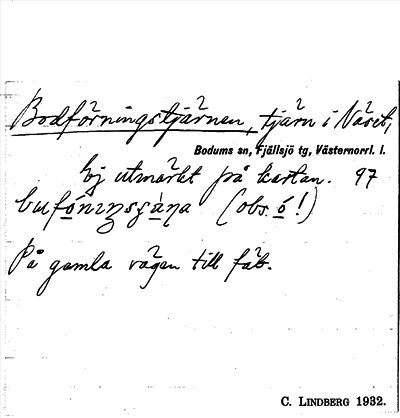 Bodförningstjärnen, tjärn i Näset,
Bodums sn, Fjällsjö tg, Västernorrl. l.
Ej utmärkt på kartan. 97
(obs. ó!)
På gamla vägen till fäb.
C. LINDBERG 1932.